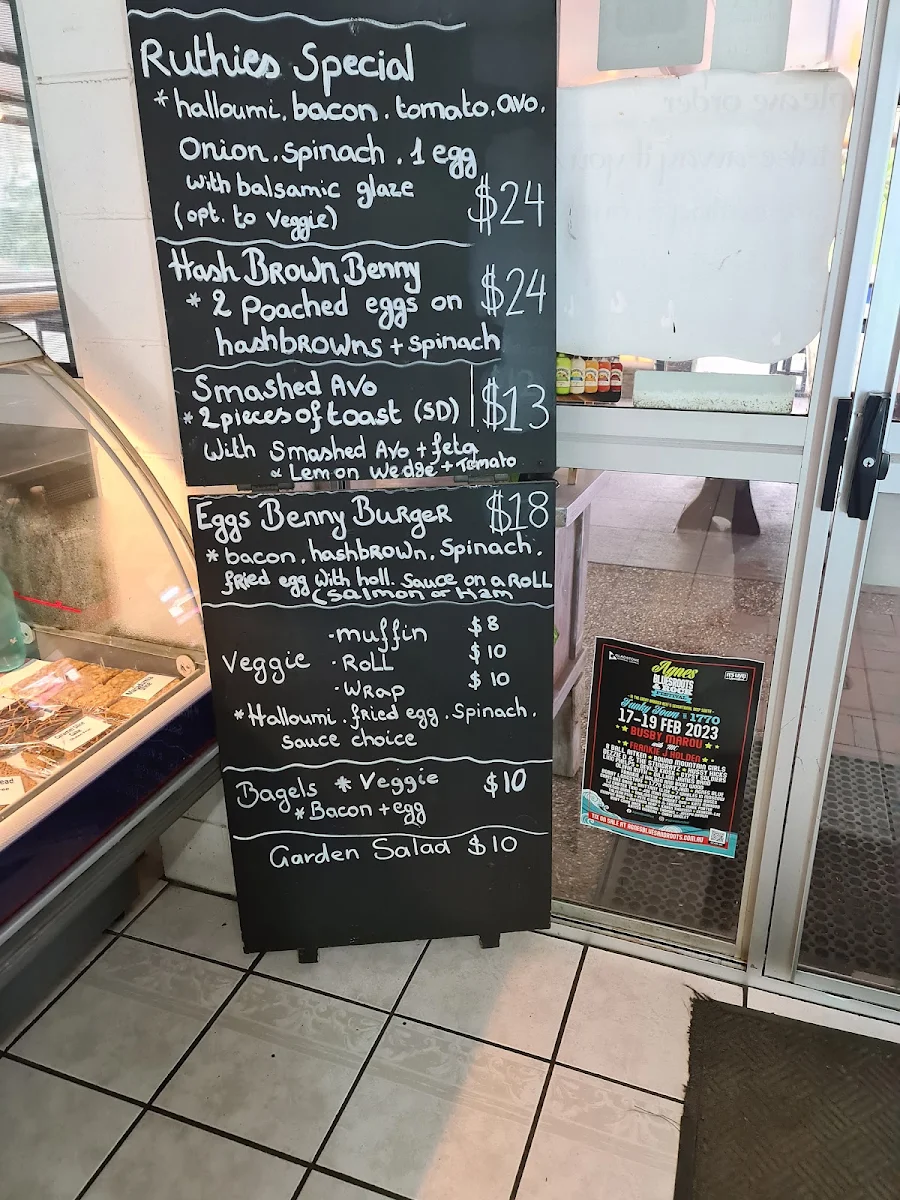 Ruthies Special
* halloumi. bacon. tomato. avo.
Onion. spinach. 1 egg
with balsamic glaze
(opt. to Veggie) $24
Hash Brown Benny
* 2 Poached eggs on $24
hashbrowns + spinach
Smashed Avo
* 2 pieces of toast (SD) $13
With Smashed Avo + feta
& Lemon Wedge + Tomato
Eggs Benny Burger $18
* bacon. hashbrown. Spinach.
fried egg with holl. Sauce on a Roll
(Salmon or Ham
Veggie
. muffin $8
. Roll $10
. Wrap $10
* Halloumi. fried egg. Spinach.
sauce choice
Bagels * Veggie $10
* Bacon + egg
Garden Salad $10
please order
Agnes
BLUES ROOTS
& ROCK
Funky Town 1770
17-19 FEB 2023
BUSBY MAROU
FRANKIE J HOLDEN
8 BALL AITKEN ROUND MOUNTAIN GIRLS